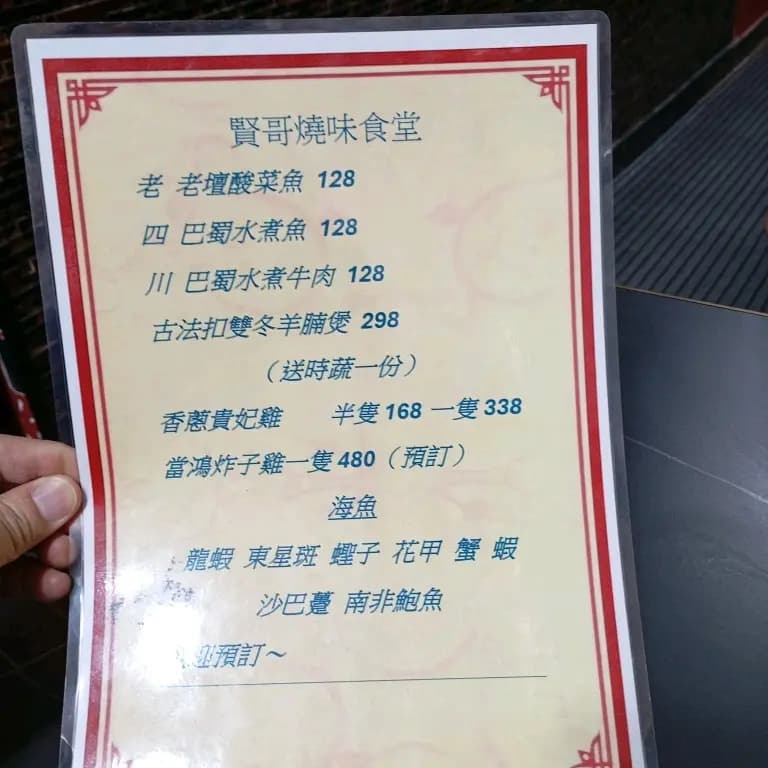 賢哥燒味食堂
老 老壇酸菜魚 128
四 巴蜀水煮魚 128
川 巴蜀水煮牛肉 128
古法扣雙冬羊腩煲 298
（送時蔬一份）
香蔥貴妃雞 半隻 168 一隻 338
當鴻炸子雞一隻 480（預訂）
海魚
龍蝦 東星斑 蟶子 花甲 蟹 蝦
沙巴躉 南非鮑魚
迎預訂～